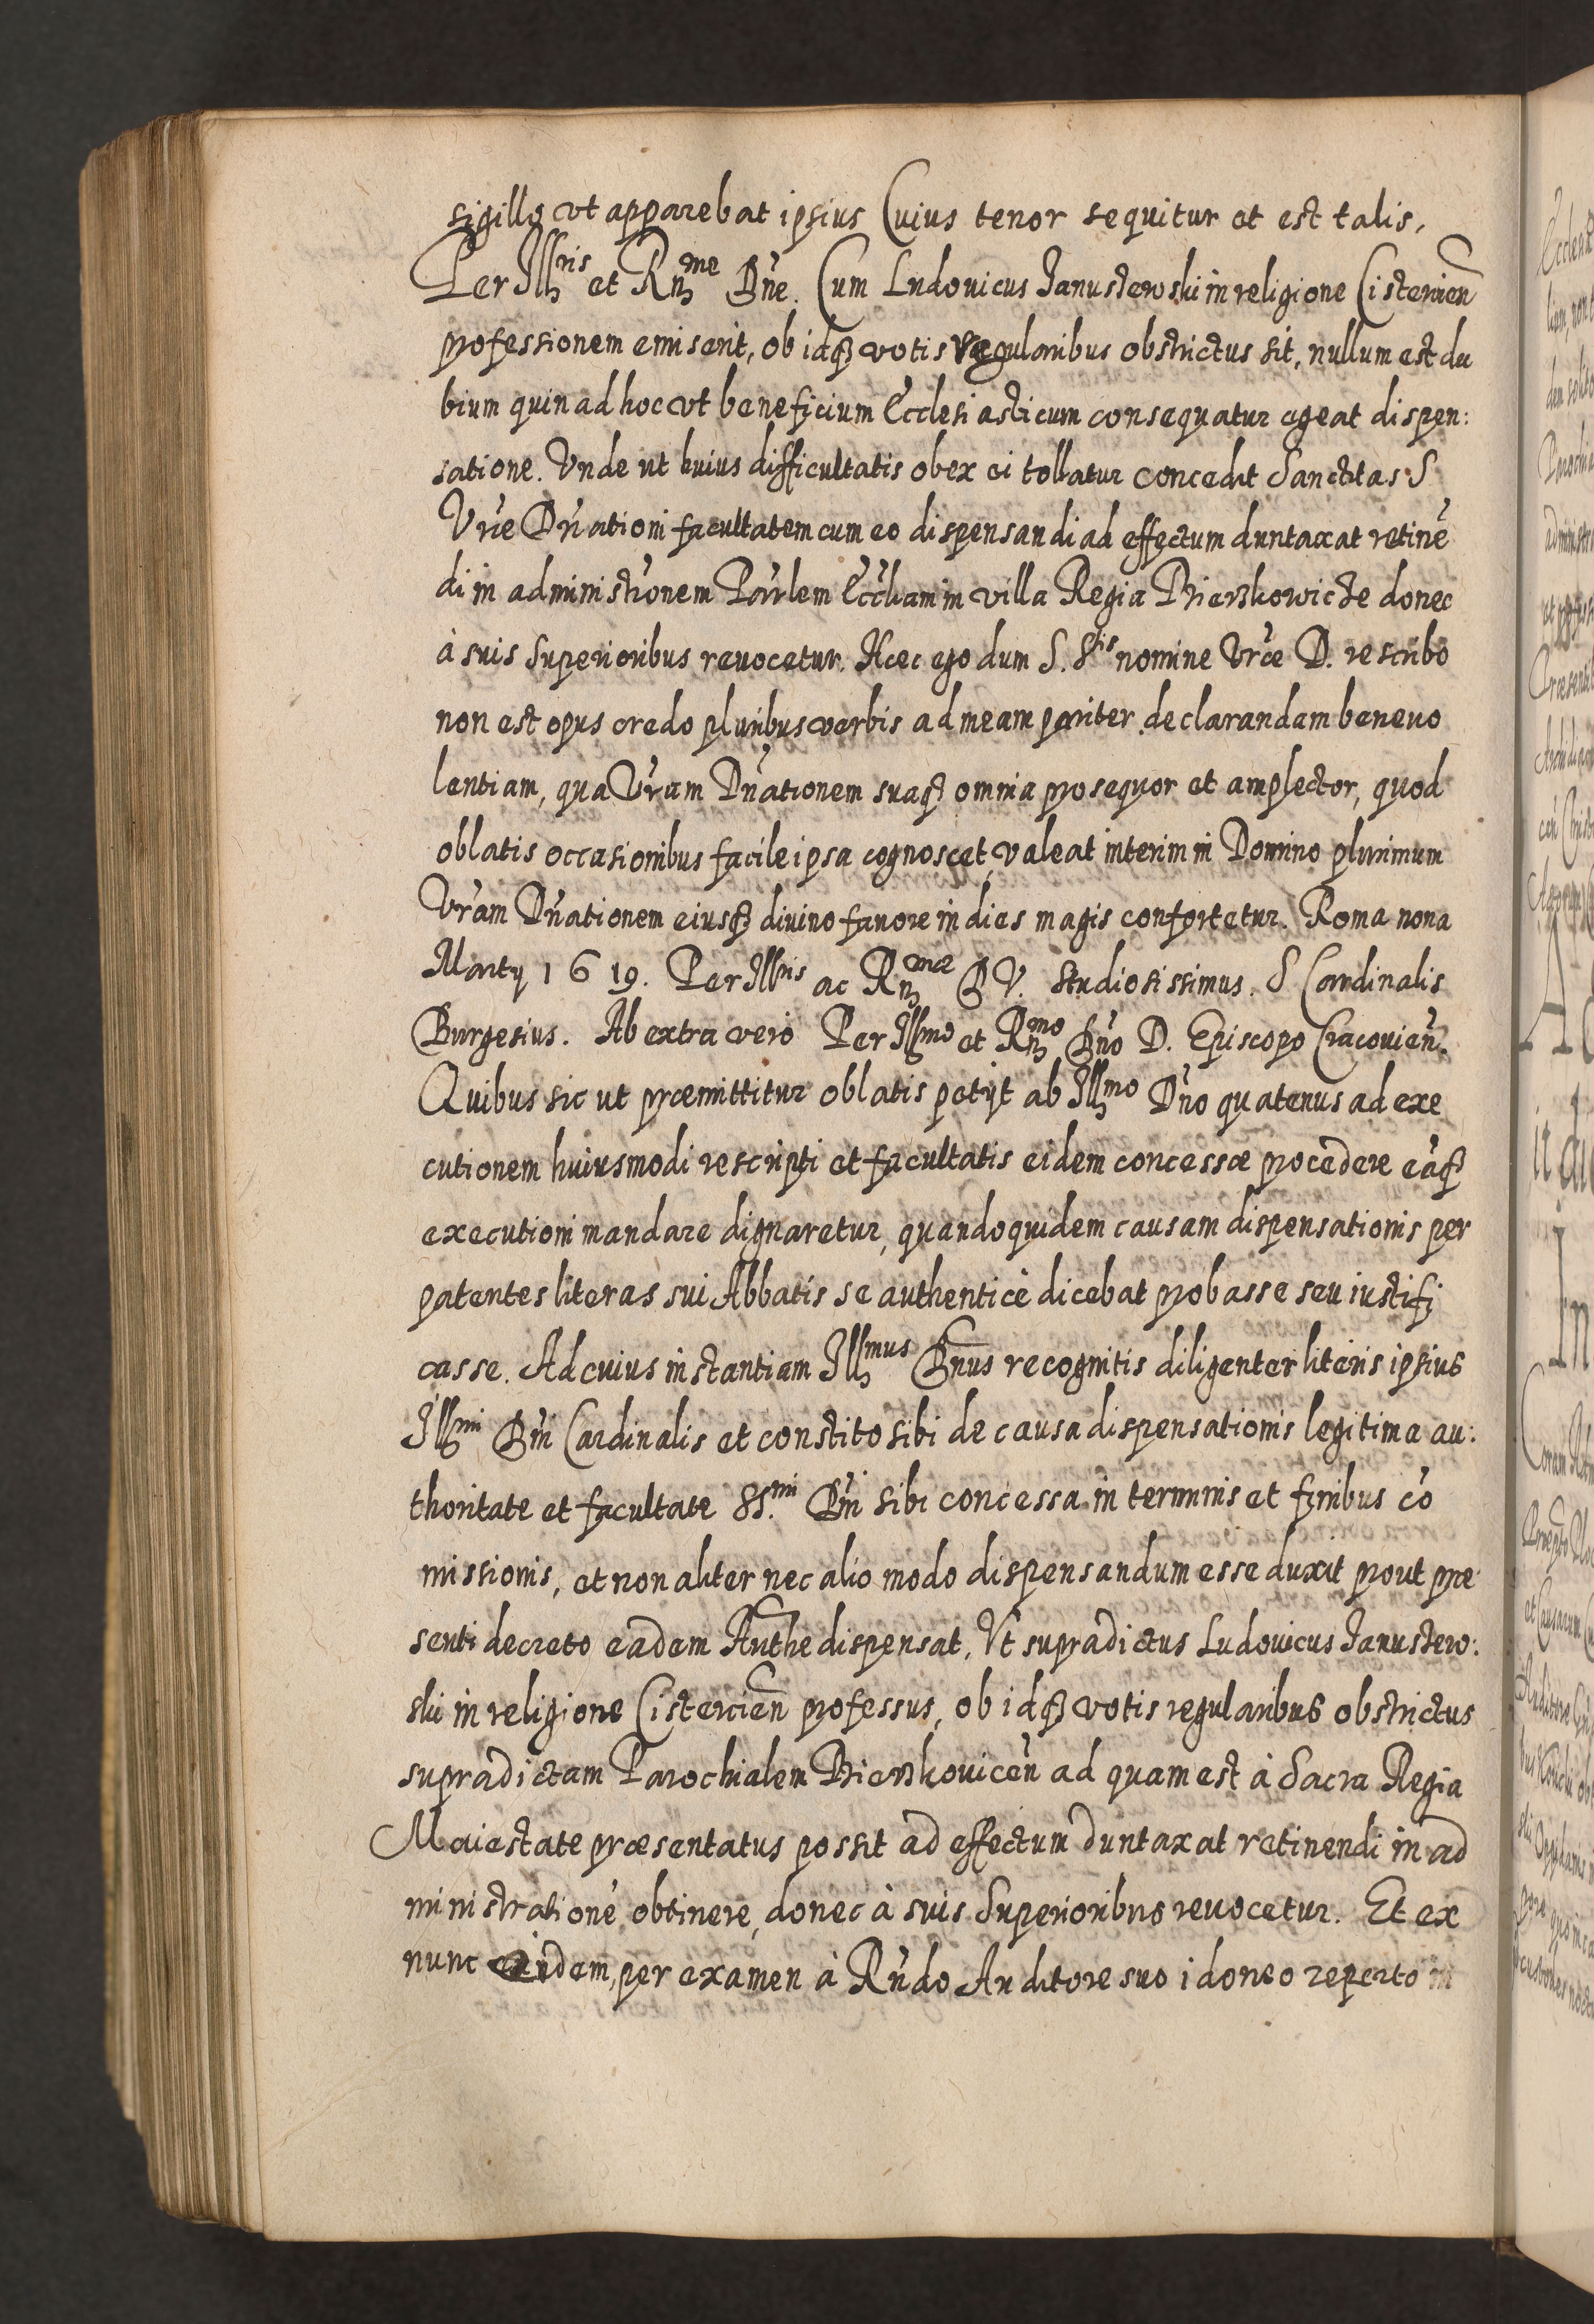 sigillo vt apparebat ipsius Cuius tenor sequitur et est talis,
Per Illris et Rnme Dne. Cum Ludouicus Janusʒewski in religione Cistercien
professionem emiserit, ob idq votis regularibus obstrictus sit, nullum est du
bium quin ad hoc vt beneficium Ecclesiasticum consequatur egeat dispen:
satione. Vnde ut huius difficultatis obex ei tollatur concedit Sanctitas S
Vrae Dnationi facultatem cum eo dispensandi ad effectum duntaxat retinē
di in administrōnem Parlem Eccliam in villa Regia Bierzkowicze donec
à suis Superioribus reuocetur. Haec ego dum S. Stis nomine Vrae D. rescribo
non est opus credo pluribus verbis ad meam pariter declarandam beneuo
lentiam, qua Vram Dnationem suaq omnia prosequor et amplector, quod
oblatis occasionibus facile ipsa cognoscet, valeat interim in Domino plurimum
Vram Dnationem eiusq diuino fauore in dies magis confortetur. Roma nona
Martÿ 1619. Per Illris ac Rnmae D V. studiosissimus. S Cardinalis
Burgesius. Ab extra verò Per Illmo et Rnmo Dno D. Episcopo Cracouien.
Quibus sic ut praemittitur oblatis petÿt ab Illmo Dno quatenus ad exe
cutionem huiusmodi rescripti et facultatis eidem concessae procedere eāq
executioni mandare dignaretur, quandoquidem causam dispensationis per
patentes literas sui Abbatis se authenticè dicebat probasse seu iustifi
casse. Ad cuius instantiam Illmus Dnus recognitis diligenter literis ipsius
Illmi Dni Cardinalis et constito sibi de causa dispensationis legitima au:
thoritate et facultate SS.mi Dni sibi concessa in terminis et finibus cō
missionis, et non aliter nec alio modo dispensandum esse duxit prout prae
senti decreto eadem Authe dispensat. Vt supradictus Ludouicus Janusʒew:
ski in religione Cistercien professus, ob idq votis regularibus obstrictus
supradictam Parochialem Bierzkouicen ad quam est à Sacra Regia
Maiestate praesentatus possit ad effectum duntaxat retinendi in ad
ministrationē obtinere, donec à suis Superioribus reuocetur. Et ex
nunc eundem, per examen à Rndo Auditore suo idoneo reperto in